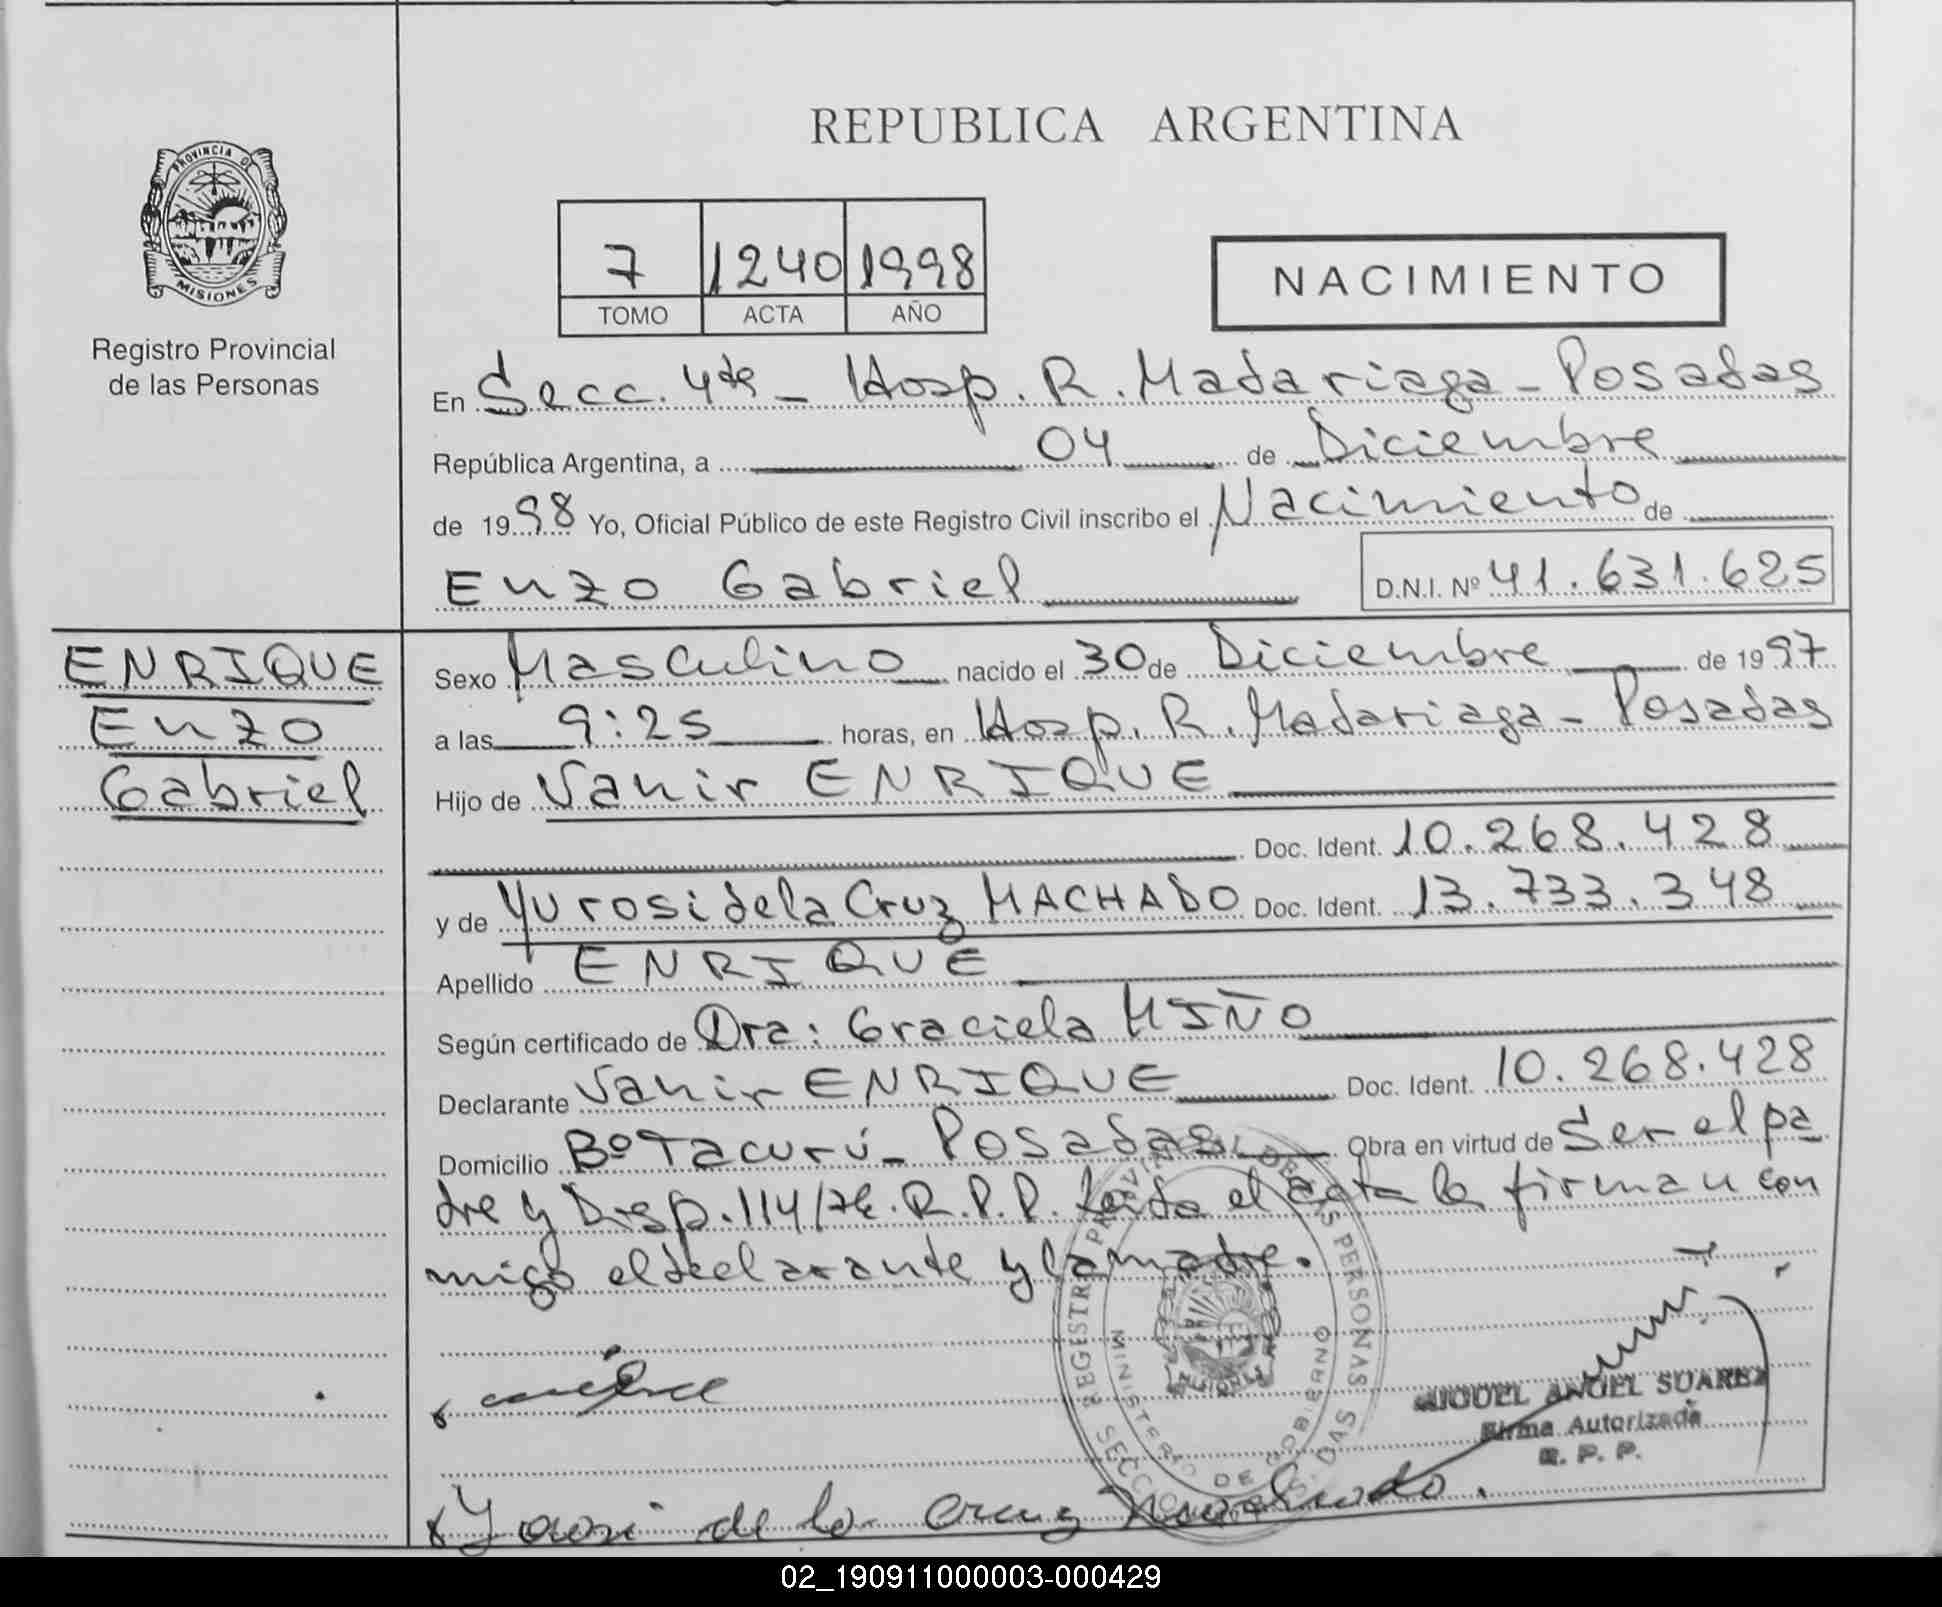 REPUBLICA ARGENTINA
PROVINCIA DE
MISIONES
Registro Provincial
de las Personas
7 1240 1998
TOMO ACTA AÑO
NACIMIENTO
En Secc. 4ta - Hosp. R. Madariaga - Posadas
República Argentina, a 04 de Diciembre
de 1998 Yo, Oficial Público de este Registro Civil inscribo el Nacimiento de
Enzo Gabriel D.N.I. Nº 41.631.625
ENRIQUE
Enzo
Gabriel
Sexo Masculino nacido el 30 de Diciembre de 1997
a las 9:25 horas, en Hosp. R. Madariaga - Posadas
Hijo de Vanir ENRIQUE
Doc. Ident. 10.268.428
y de Yurosi de la Cruz MACHADO Doc. Ident. 13.733.348
Apellido ENRIQUE
Según certificado de Dra: Graciela MIÑO
Declarante Vanir ENRIQUE Doc. Ident. 10.268.428
Domicilio Bº Tacurú - Posadas Obra en virtud de Ser el pa
dre y Disp. 114/ R.P.P. Leída el acta la firman con
migo el declarante y la madre.
REGISTRO PROVINCIAL DE LAS PERSONAS
MINISTERIO DE GOBIERNO
MIGUEL ANGEL SUAREZ
Firma Autorizada
R. P. P.
de la Cruz Machado.
02_190911000003-000429